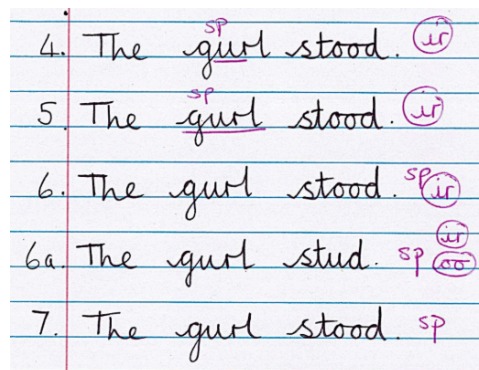 sp
4. The gurl stood. ir
sp
5. The gurl stood. ir
6. The gurl stood. sp ir
ir
6a. The gurl stud. sp oo
7. The gurl stood. sp